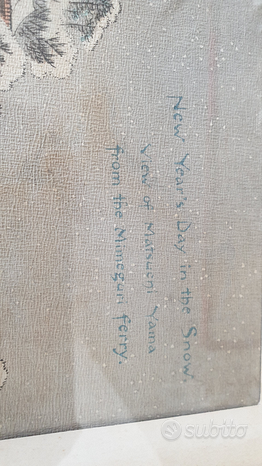 New Year's Day in the Snow.
View of Matsueni Yama
from the Mimeguri ferry.
subito